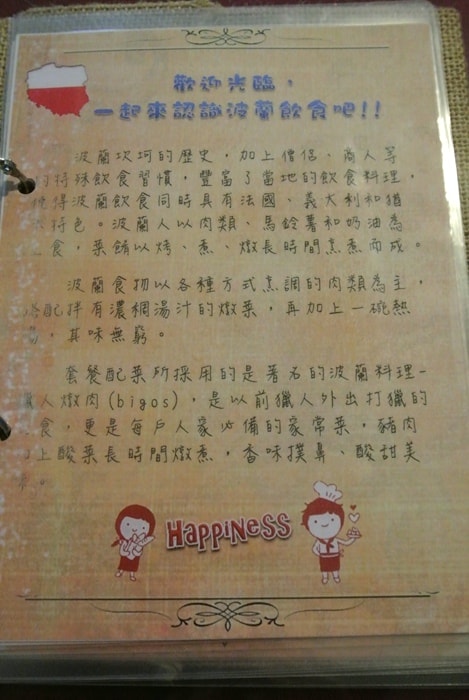 歡迎光臨，
一起來認識波蘭飲食吧!!
波蘭坎坷的歷史，加上僧侶、商人等
的特殊飲食習慣，豐富了當地的飲食料理，
使得波蘭飲食同時具有法國、義大利和猶
特色。波蘭人以肉類、馬鈴薯和奶油為
食，菜餚以烤、煮、燉長時間烹煮而成。
波蘭食物以各種方式烹調的肉類為主，
搭配拌有濃稠湯汁的燉菜，再加上一碗熱
湯，其味無窮。
套餐配菜所採用的是著名的波蘭料理-
獵人燉肉(bigos)，是以前獵人外出打獵的
食，更是每戶人家必備的家常菜，豬肉
上酸菜長時間燉煮，香味撲鼻、酸甜美
。
HAPPINESS